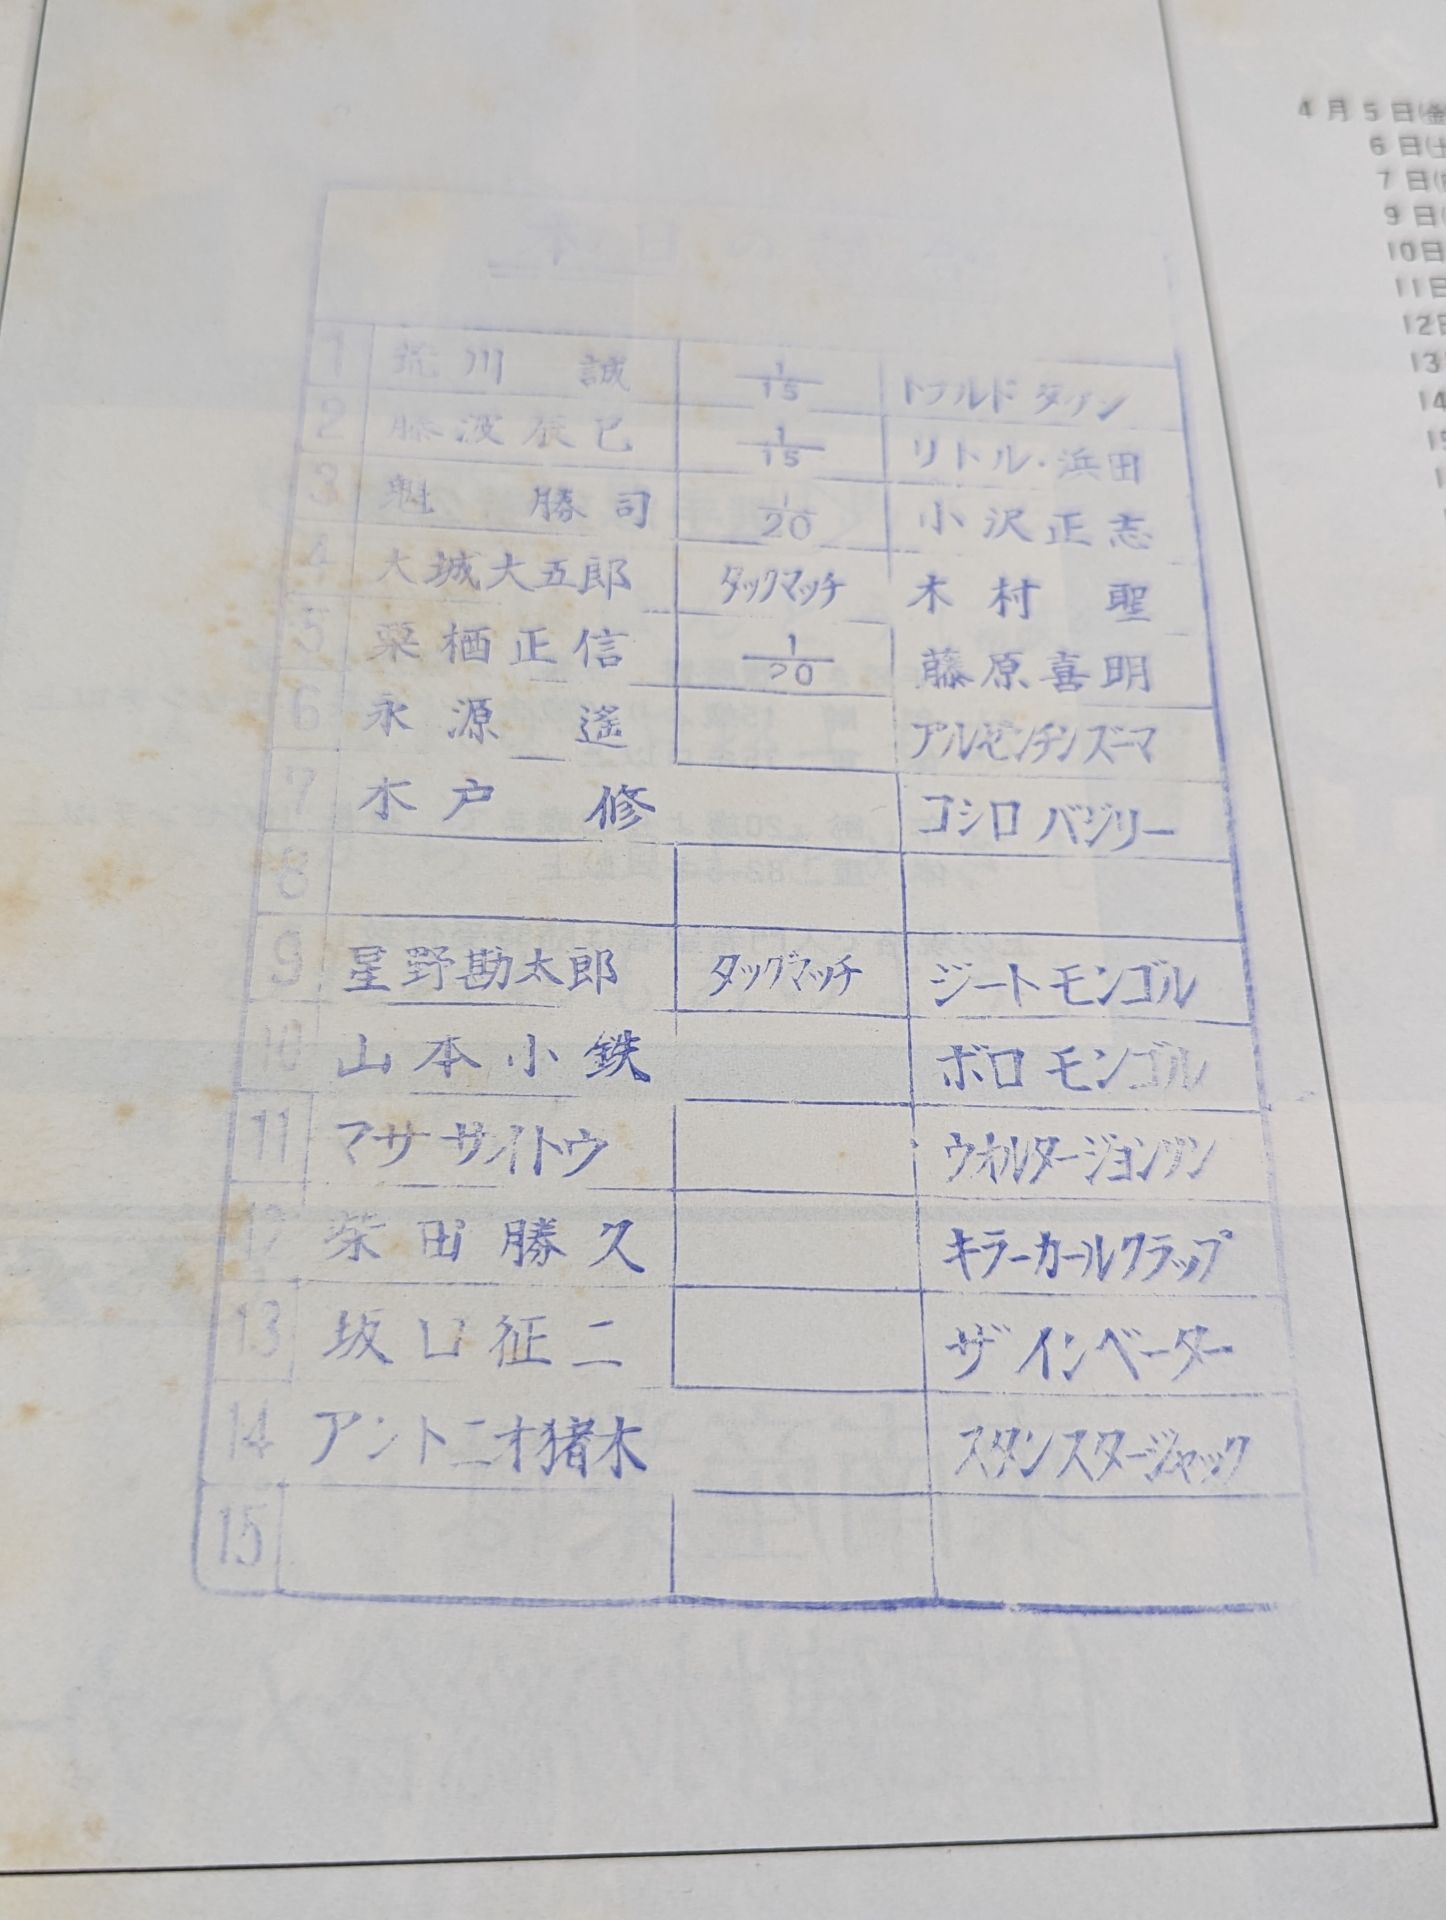 1 荒川 誠 1/15 ドナルド タケシ
2 藤波辰巳 1/15 リトル・浜田
3 魁 勝司 1/20 小沢正志
4 大城大五郎 タッグマッチ 木村 聖
5 栗栖正信 1/20 藤原喜明
6 永源 遥 アルゼンチンズマ
7 木戸 修 コシロ バジリー
8
9 星野勘太郎 タッグマッチ ジート モンゴル
10 山本小鉄 ボロ モンゴル
11 マサ サイトウ ウオルタージョンソン
12 柴田勝久 キラーカールクラップ
13 坂口征二 ザ インベーダー
14 アントニオ猪木 スタン スタージャック
15
4月5日(金
6日(土
7日(
9日(
10日
11日
12日
13
14